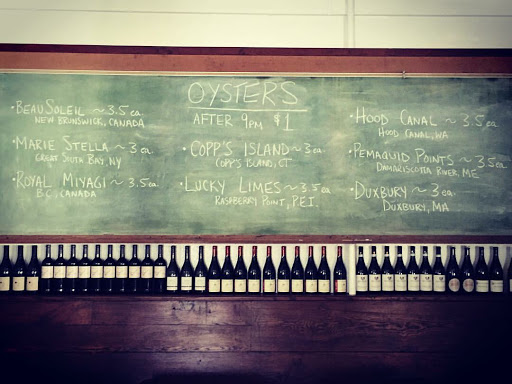 OYSTERS
AFTER 9PM $1
• BEAUSOLEIL ~ 3.5 ea.
NEW BRUNSWICK, CANADA
• MARIE STELLA ~ 3 ea.
GREAT SOUTH BAY, NY
• ROYAL MIYAGI ~ 3.5 ea.
B.C. CANADA
• COPP'S ISLAND ~ 3 ea.
COPP'S ISLAND, CT
• LUCKY LIMES ~ 3.5 ea.
RASPBERRY POINT, P.E.I.
• HOOD CANAL ~ 3 ea.
HOOD CANAL, WA
• PEMAQUID POINTS ~ 3.5 ea.
DAMARISCOTTA RIVER, ME
• DUXBURY ~ 3 ea.
DUXBURY, MA